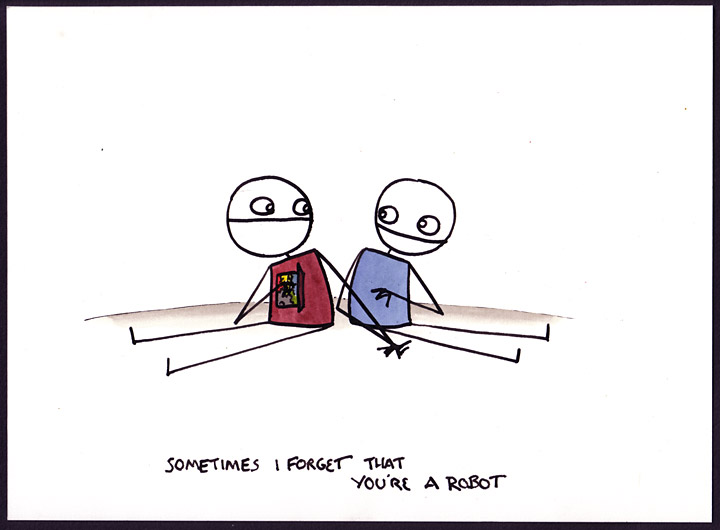 SOMETIMES I FORGET THAT
YOU'RE A ROBOT